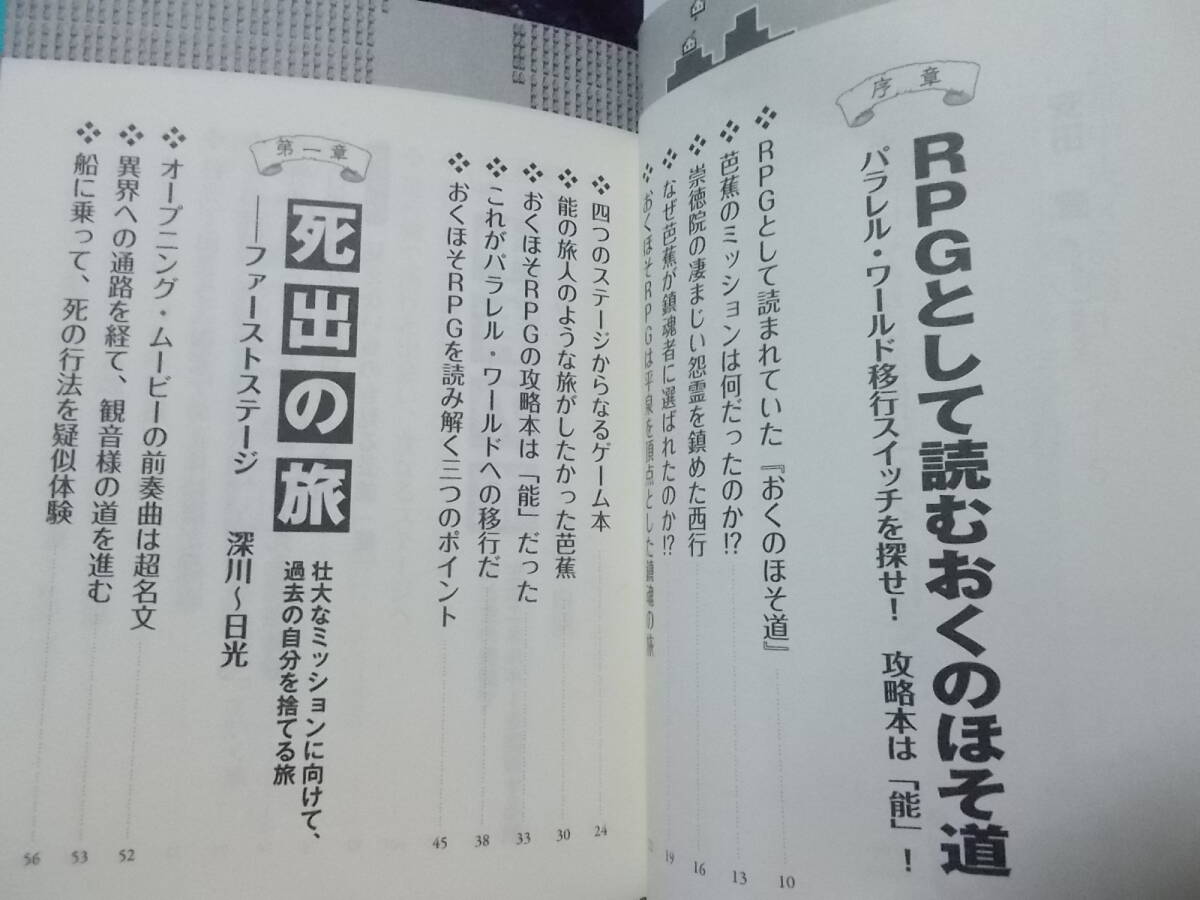 序章
RPGとして読むおくのほそ道
パラレル・ワールド移行スイッチを探せ！ 攻略本は「能」！
❖ RPGとして読まれていた『おくのほそ道』 10
❖ 芭蕉のミッションは何だったのか!? 13
❖ 崇徳院の凄まじい怨霊を鎮めた西行 16
❖ なぜ芭蕉が鎮魂者に選ばれたのか!? 19
❖ おくほそRPGは平泉を頂点とした鎮魂の旅
❖ 四つのステージからなるゲーム本 24
❖ 能の旅人のような旅がしたかった芭蕉 30
❖ おくほそRPGの攻略本は「能」だった 33
❖ これがパラレル・ワールドへの移行だ 38
❖ おくほそRPGを読み解く三つのポイント 45
第一章
死出の旅
壮大なミッションに向けて、
過去の自分を捨てる旅
――ファーストステージ 深川〜日光
❖ オープニング・ムービーの前奏曲は超名文 52
❖ 異界への通路を経て、観音様の道を進む 53
❖ 船に乗って、死の行法を疑似体験 56